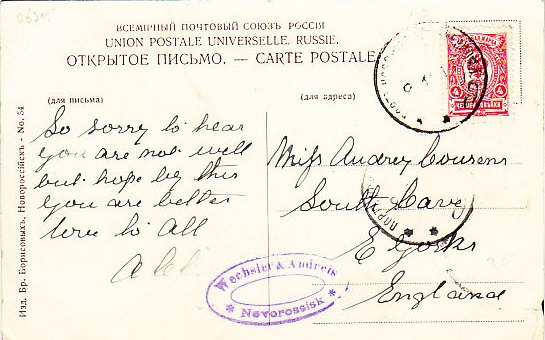 ВСЕМІРНЫЙ ПОЧТОВЫЙ СОЮЗЪ РОССІЯ
UNION POSTALE UNIVERSELLE. RUSSIE.
ОТКРЫТОЕ ПИСЬМО. — CARTE POSTALE
(для письма)
(для адреса)
So sorry to hear
you are not well
but hope by this
you are better
love to All
Miss Audrey Cousens
South Cave
E Yorks
England
Wechsler & Andreis
Novorossisk
4 4
Изд. Бр. Борисовыхъ, Новороссійскъ - No. 54